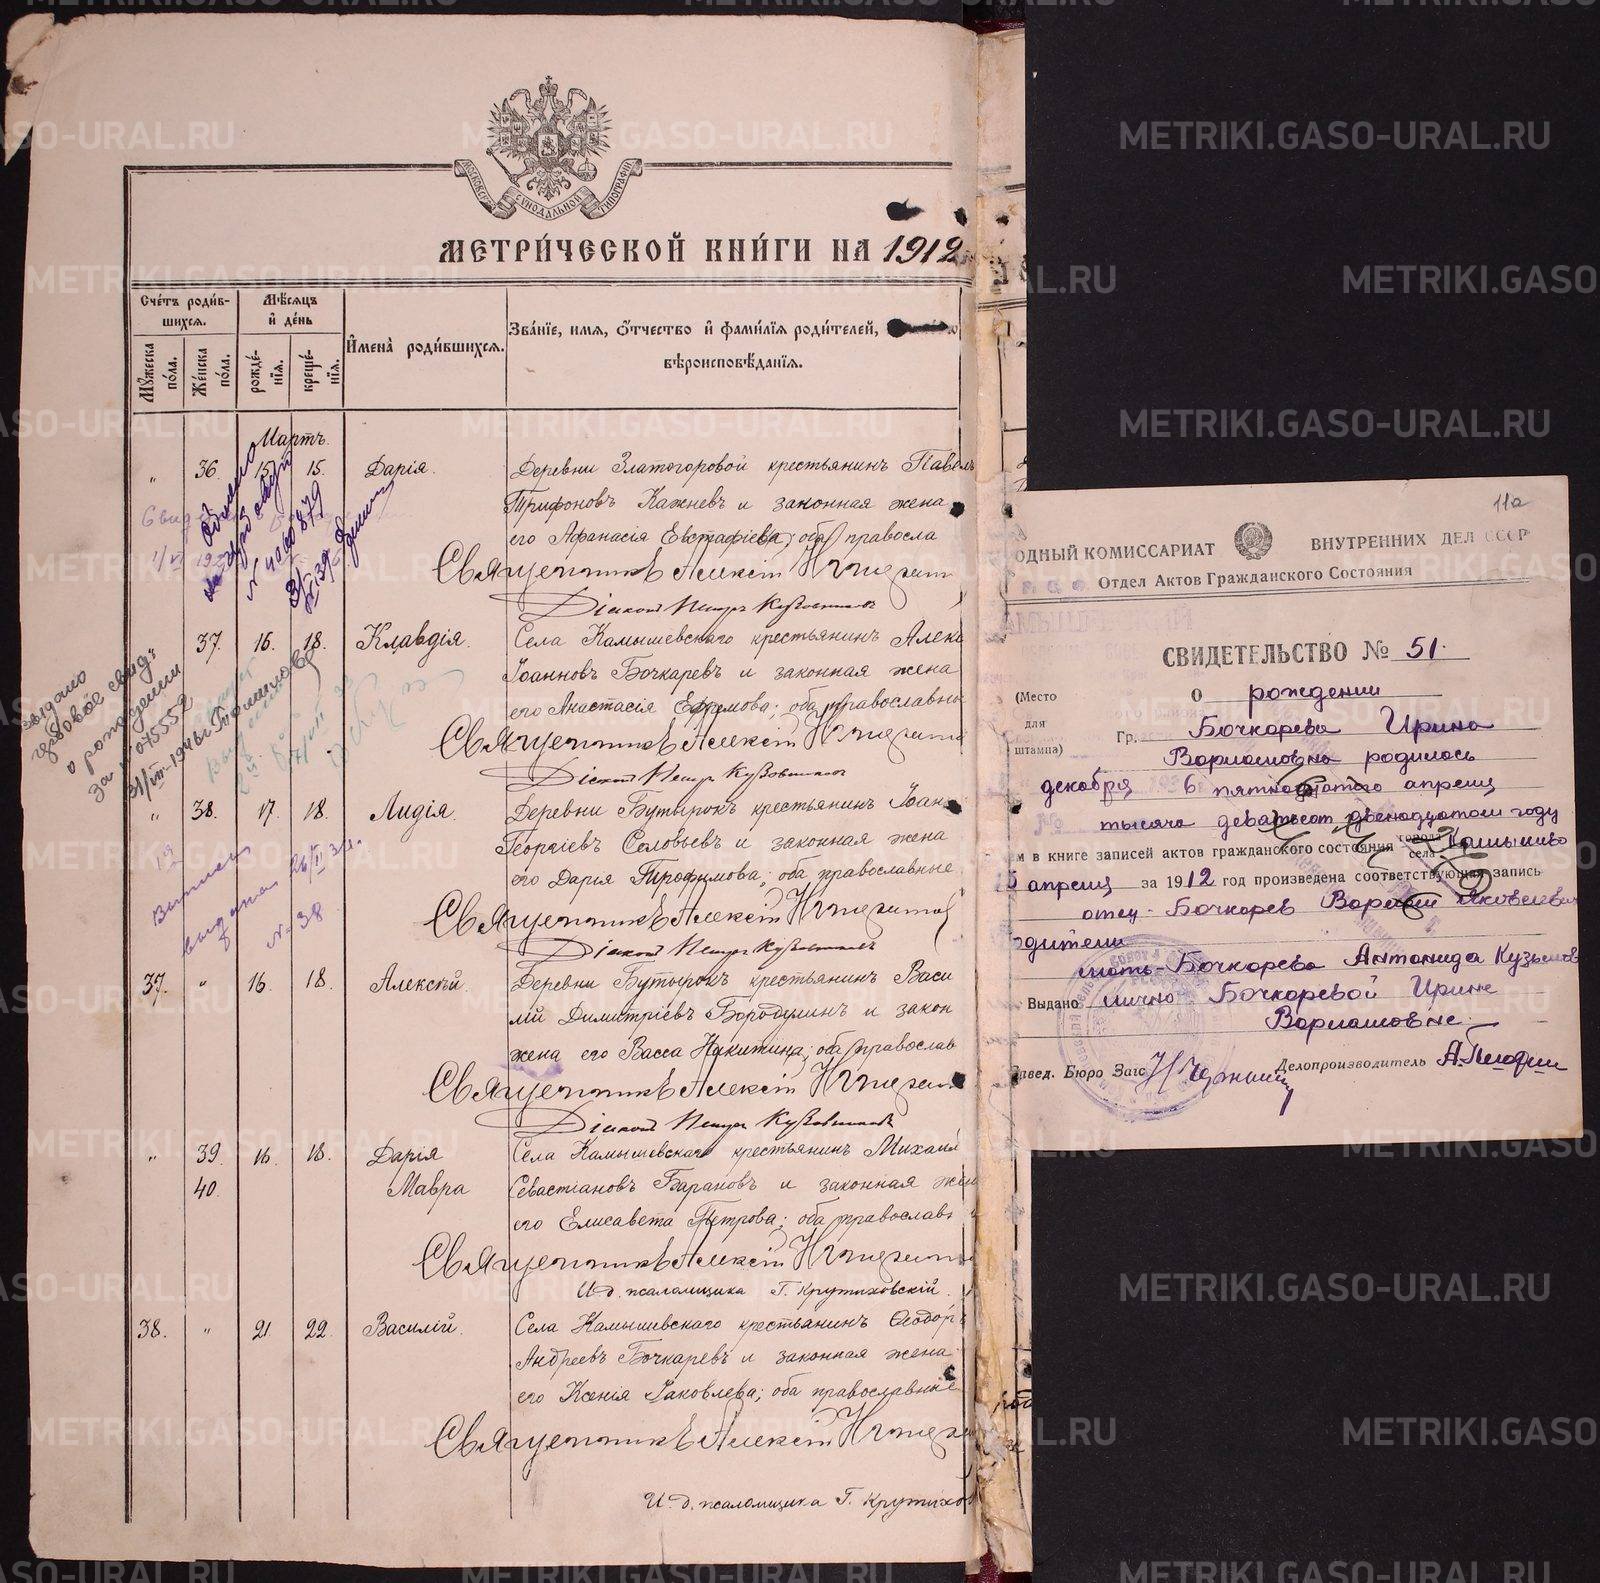 МОСКОВСК. СѴНОДАЛЬНОЙ ТИПОГРАФІИ
МЕТРИ́ЧЕСКОЙ КНИ́ГИ НА 1912
Сче́тъ роди́в-
шихся.
Мѣ́сяцъ
и҆ де́нь
Мꙋ́жеска
по́ла.
Же́нска
по́ла.
рожде́-
нїя.
креще́-
нїя.
И҆мена̀ роди́вшихся.
Зва́нїе, имя, ѻ҆́тчество и҆ фами́лїѧ роди́телей,
вѣроисповѣ́данїя.
Мартъ.
„ 36. 15. 15. Дарія. Деревни Златогоровой крестьянинъ Павелъ
Трифоновъ Кажневъ и законная жена
его Афанасія Евстафіева; оба правосла
Священникъ Алексій
Діаконъ Петръ Кузовников
37. 16. 18. Клавдія. Села Камышевскаго крестьянинъ Алекс
Іоанновъ Бочкаревъ и законная жена
его Анастасія Ефимова; оба православны
Священникъ Алексій
Діаконъ Петръ Кузовников
„ 38. 17. 18. Лидія. Деревни Бутырокъ крестьянинъ Іоан
Георгіевъ Соловьевъ и законная жена
его Дарія Трофимова; оба православные
Священникъ Алексій
Діаконъ Петръ Кузовников
37. „ 16. 18. Алексѣй. Деревни Бутырокъ крестьянинъ Васи
лій Димитріевъ Бородулинъ и закон
жена его Васса Никитина; оба православ
Священникъ Алексій
Діаконъ Петръ Кузовников
„ 39. 16. 18. Дарія Села Камышевскаго крестьянинъ Михаил
40. Мавра Севастіановъ Барановъ и законная жен
его Елисавета Петрова; оба православн
Священникъ Алексій
И. д. псаломщика Г. Крутиховскій.
38. „ 21. 22. Василій. Села Камышевскаго крестьянинъ Ѳеодоръ
Андреевъ Бочкаревъ и законная жена
его Ксенія Іаковлева; оба православные
Священникъ Алексій
И. д. псаломщика Г. Крутихов
выдано
новое свид.
о рождении
075552
31/VII-1946г
Выписка
выдана 26/II
№ 38
11а
ОДНЫЙ КОМИССАРИАТ ВНУТРЕННИХ ДЕЛ СССР
Отдел Актов Гражданского Состояния
СВИДЕТЕЛЬСТВО № 51.
(Место
для
штампа)
о рождении
Гр. Бочкарева Ирина
Варламовна родилась
декабря 6 пятнадцатого апреля
тысяча девятьсот двенадцатом году
м в книге записей актов гражданского состояния города села Камышево
15 апреля за 1912 год произведена соответствующая запись
отец - Бочкарев Варлам Яковлевич
одители
мать - Бочкарева Антонида Кузьмов
Выдано лично Бочкаревой Ирине
Варламовне.
Завед. Бюро Загс
Делопроизводитель
METRIKI.GASO-URAL.RU